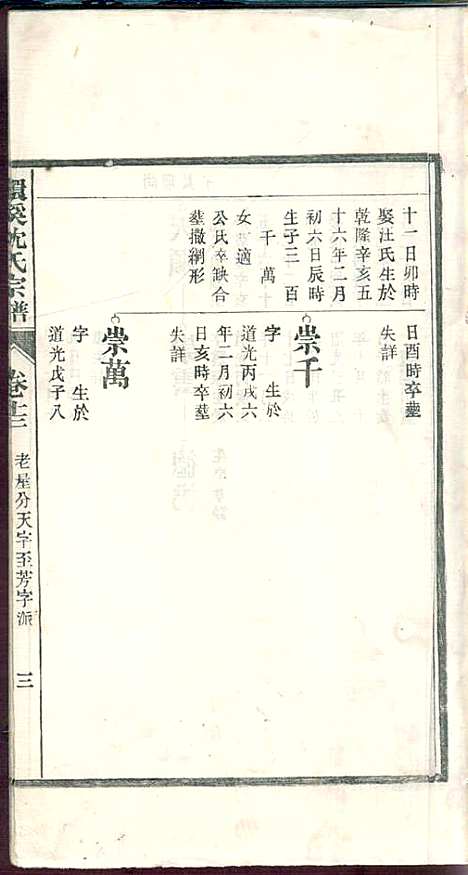 十一日卯時
娶汪氏生於
乾隆辛亥五
十六年二月
初六日辰時
生子三 百
千 萬
女 適
公氏卒缺合
塟撒網形
日酉時卒塟
失詳
崇千
字 生於
道光丙戌六
年二月初六
日亥時卒塟
失詳
崇萬
字 生於
道光戊子八
環溪沈氏宗譜
卷十三
老屋分天字至芳字派
三